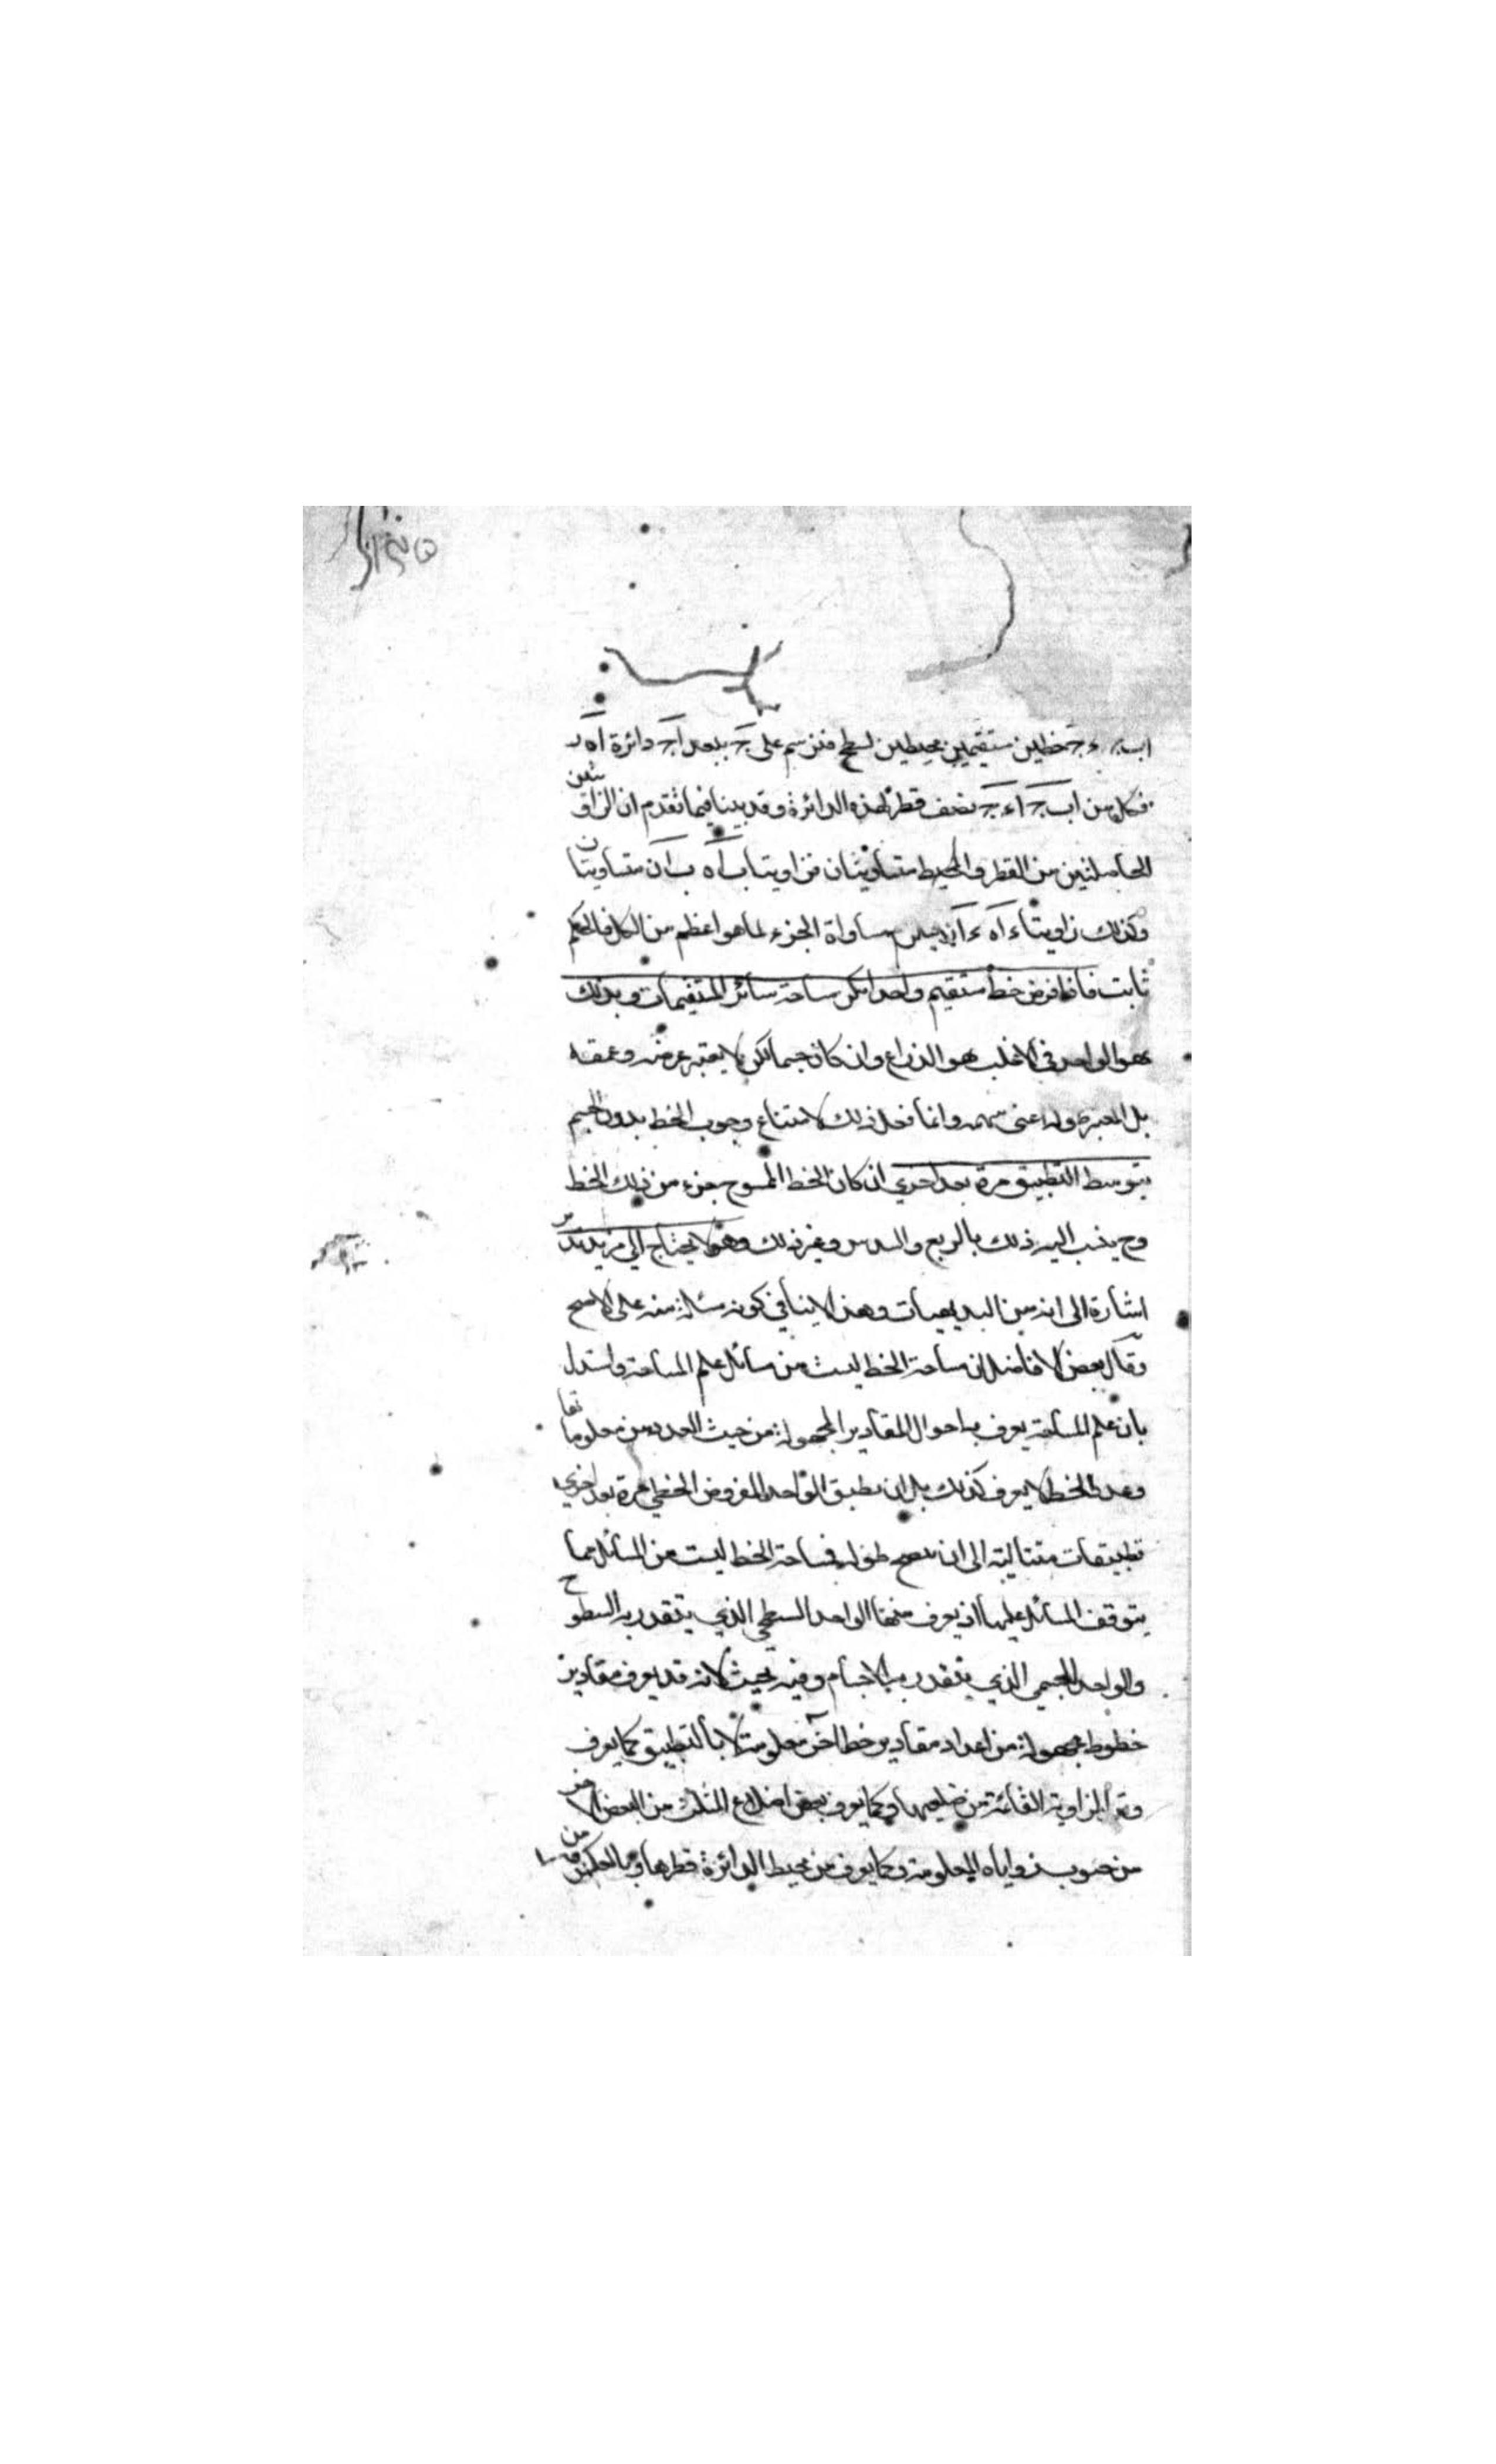 اب ج خطين مستقيمين محيطين بسطح فنرسم على ج ببعد اج دائرة اه د
فكل من اب ج اء ج نصف قطر لهذه الدائرة وقد بينا فيما تقدم ان الزاويتين
الحاصلتين من القطر والمحيط متساويتان فزاويتا ب اه ب ان متساويتان
وكذلك زاويتا ء اه ء ان فيلزم مساواة الجزء لما هو اعظم من الكل فالحكم
ثابت فاذا فرض خط مستقيم واحد امكن مساحة سائر المستقيمات وبذلك
هو الواحد في الاغلب هو الذراع وان كان جسما لكن لا يعتبر عرضه وعمقه
بل المعتبر طوله اعنى سهمه وانما فعل ذلك لامتناع وجوب الخط بدون الجسم
بتوسط التطبيق مرة بعد اخرى ان كان الخط الممسوح جزء من ذلك الخط
وح ينسب اليه ذلك بالربع والسدس وغير ذلك وهو لا يحتاج الى مزيد تدبر
اشارة الى انه من البديهيات وهذا لا ينافي كونه مسئلة منه على الاصح
وقال بعض الافاضل ان مساحة الخط ليست من مسائل علم المساحة واستدل
بان علم المساحة يعرف به احوال المقادير المجهولة من حيث العدد من معلوماتها
وعدد الخط لا يعرف كذلك بل ان يطبق الواحد المفروض الخطي مرة بعد اخرى
تطبيقات متتالية الى ان طوله فمساحة الخط ليست من المسائل مما
يتوقف المسائل عليها اذ يعرف منها الواحد السطحي الذي يتقدر به السطوح
والواحد الجسمي الذي يتقدر به الاجسام وفيه بحث لانه قد يعرف مقادير
خطوط مجهولة من اعداد مقادير خطا اخر معلومة لا بالتطبيق كما يعرف
وتر الزاوية القائمة من ضلعيها وكما يعرف بعض اضلاع المثلث من البعض الاخر
من جيوب زواياه المعلومة وكما يعرف من محيط الدائرة قطرها وبالعكس